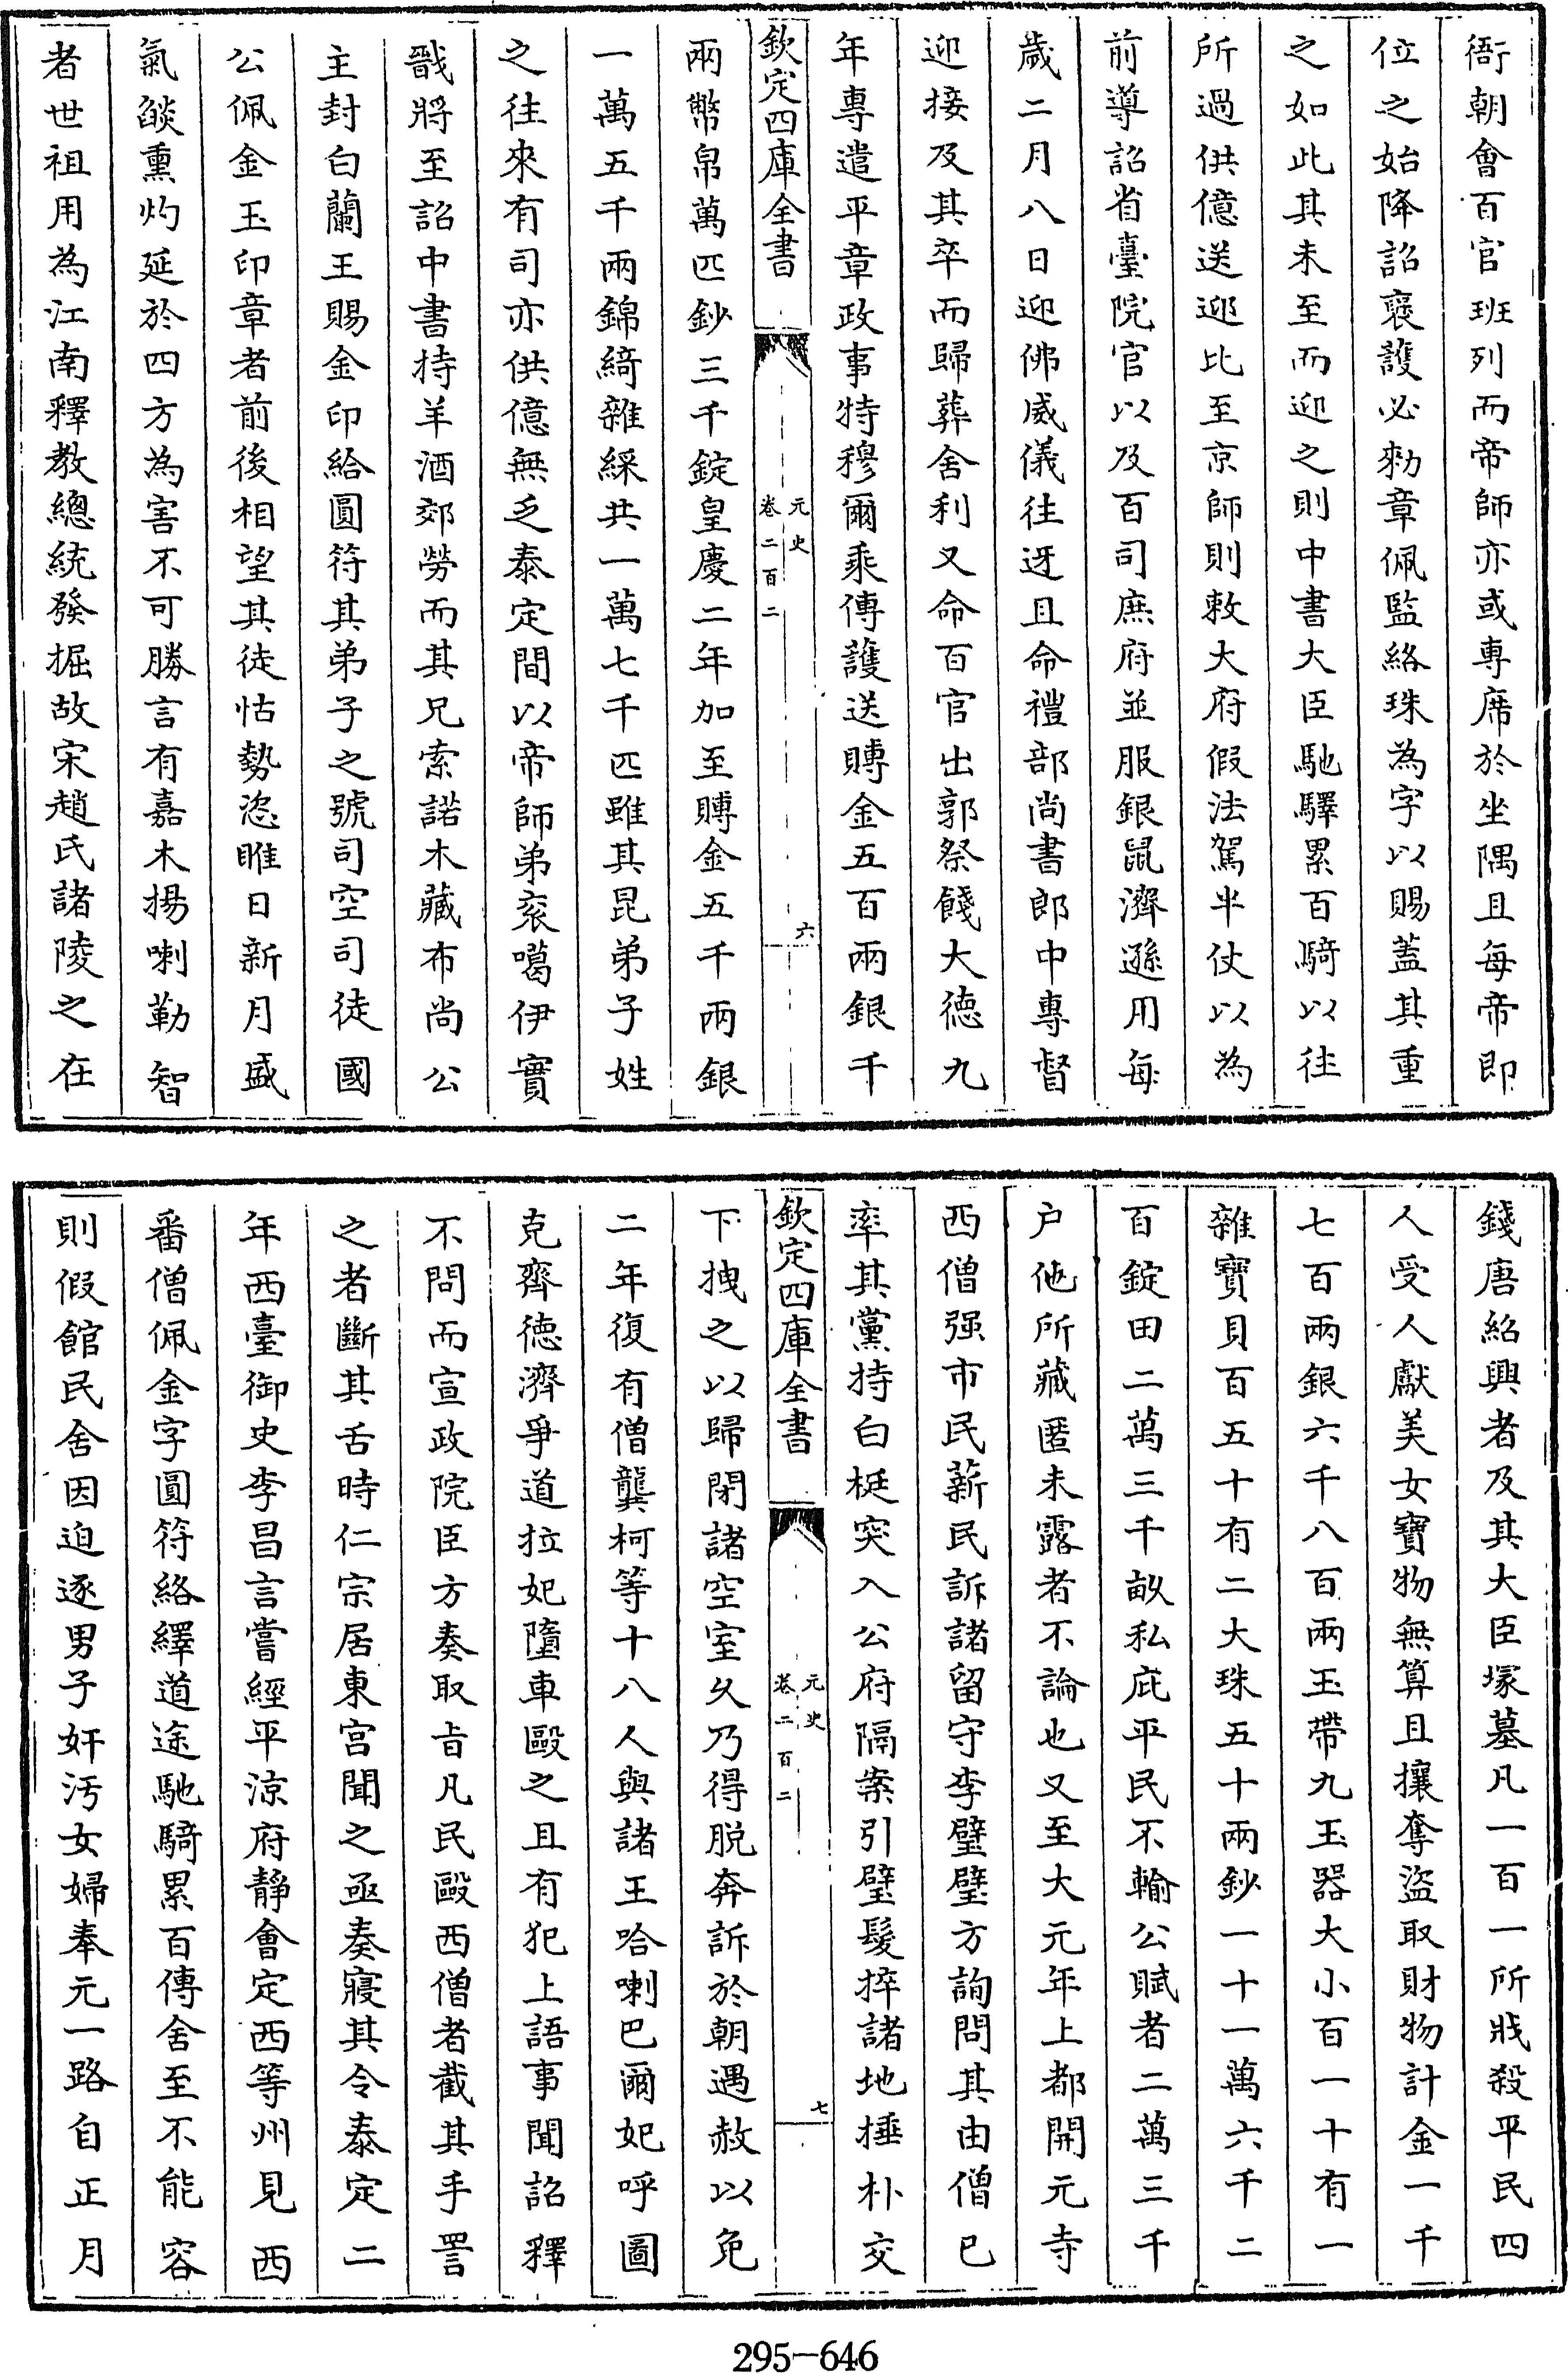 衙朝會百官班列而帝師亦或專席於坐隅且每帝即
位之始降詔襃護必勑章佩監絡珠為字以賜蓋其重
之如此其未至而迎之則中書大臣馳驛累百騎以往
所過供億送迎比至京師則敕大府假法駕半仗以為
前導詔省臺院官以及百司庶府並服銀鼠濟遜用每
歲二月八日迎佛威儀往迓且命禮部尚書郎中專督
迎接及其卒而歸葬舍利又命百官出郭祭餞大德九
年專遣平章政事特穆爾乘傳護送賻金五百兩銀千
欽定四庫全書
元史
卷二百二
六
兩幣帛萬匹鈔三千錠皇慶二年加至賻金五千兩銀
一萬五千兩錦綺雜綵共一萬七千匹雖其昆弟子姓
之往來有司亦供億無乏泰定間以帝師弟衮噶伊實
戩將至詔中書持羊酒郊勞而其兄索諾木藏布尚公
主封白蘭王賜金印給圓符其弟子之號司空司徒國
公佩金玉印章者前後相望其徒怙勢恣睢日新月盛
氣燄熏灼延於四方為害不可勝言有嘉木揚喇勒智
者世祖用為江南釋教總統發掘故宋趙氏諸陵之在
錢唐紹興者及其大臣塚墓凡一百一所戕殺平民四
人受人獻美女寶物無算且攘奪盜取財物計金一千
七百兩銀六千八百兩玉帶九玉器大小百一十有一
雜寶貝百五十有二大珠五十兩鈔一十一萬六千二
百錠田二萬三千畝私庇平民不輸公賦者二萬三千
户他所藏匿未露者不論也又至大元年上都開元寺
西僧强市民薪民訴諸留守李璧璧方詢問其由僧已
率其黨持白梃突入公府隔案引璧髮捽諸地捶朴交
欽定四庫全書
元史
卷二百二
七
下拽之以歸閉諸空室久乃得脱奔訴於朝遇赦以免
二年復有僧龔柯等十八人與諸王哈喇巴爾妃呼圖
克齊德濟爭道拉妃墮車毆之且有犯上語事聞詔釋
不問而宣政院臣方奏取旨凡民毆西僧者截其手詈
之者斷其舌時仁宗居東宫聞之亟奏寢其令泰定二
年西臺御史李昌言嘗經平涼府靜會定西等州見西
番僧佩金字圓符絡繹道途馳騎累百傳舍至不能容
則假館民舍因迫逐男子奸汚女婦奉元一路自正月
295-646